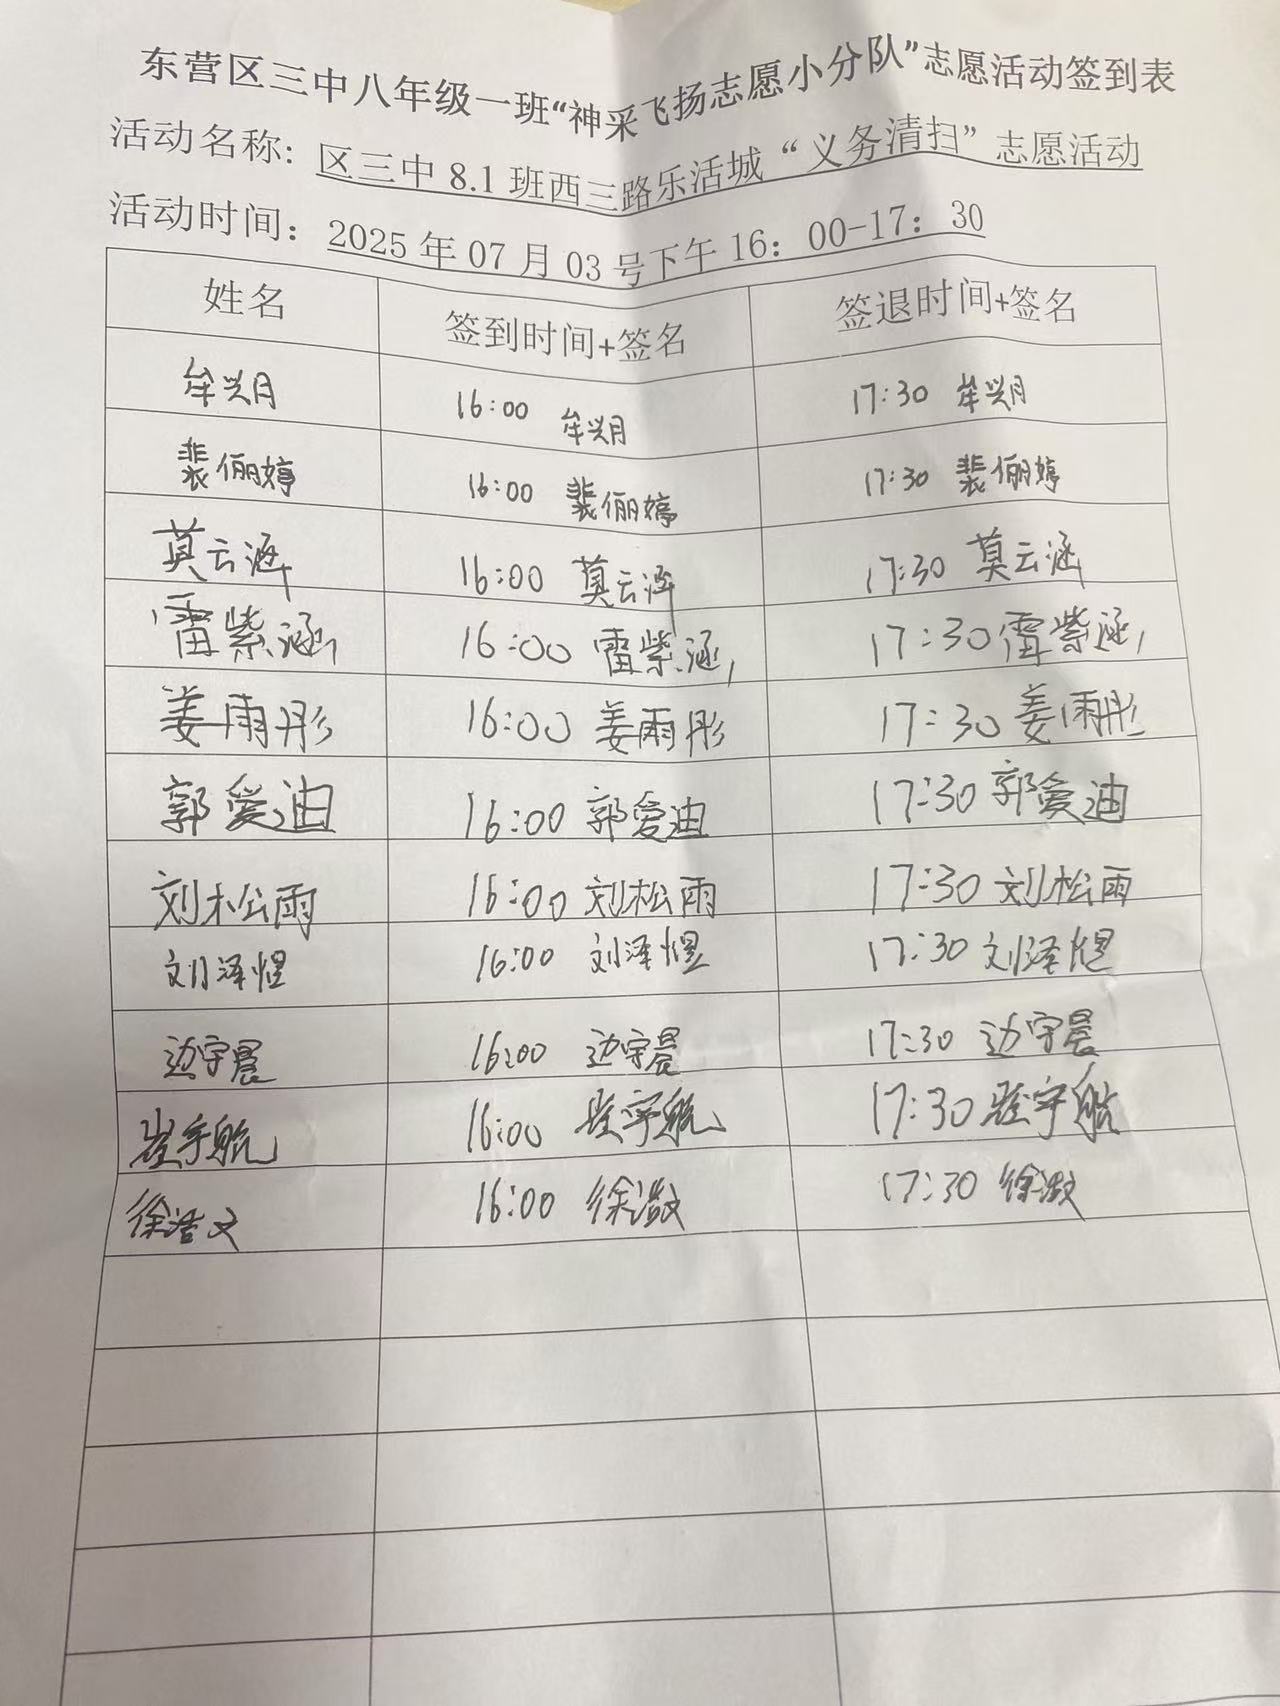 东营区三中八年级一班“神采飞扬志愿小分队”志愿活动签到表
活动名称: 区三中 8.1 班西三路乐活城“义务清扫”志愿活动
活动时间: 2025 年 07 月 03 号下午 16: 00-17: 30
姓名 签到时间+签名 签退时间+签名
牟兴月 16:00 牟兴月 17:30 牟兴月
裴俪婷 16:00 裴俪婷 17:30 裴俪婷
莫云涵 16:00 莫云涵 17:30 莫云涵
雷紫涵 16:00 雷紫涵 17:30 雷紫涵
姜雨彤 16:00 姜雨彤 17:30 姜雨彤
郭爱迪 16:00 郭爱迪 17:30 郭爱迪
刘松雨 16:00 刘松雨 17:30 刘松雨
刘泽煜 16:00 刘泽煜 17:30 刘泽煜
边宇晨 16:00 边宇晨 17:30 边宇晨
崔宇航 16:00 崔宇航 17:30 崔宇航
徐浩文 16:00 徐浩文 17:30 徐浩文